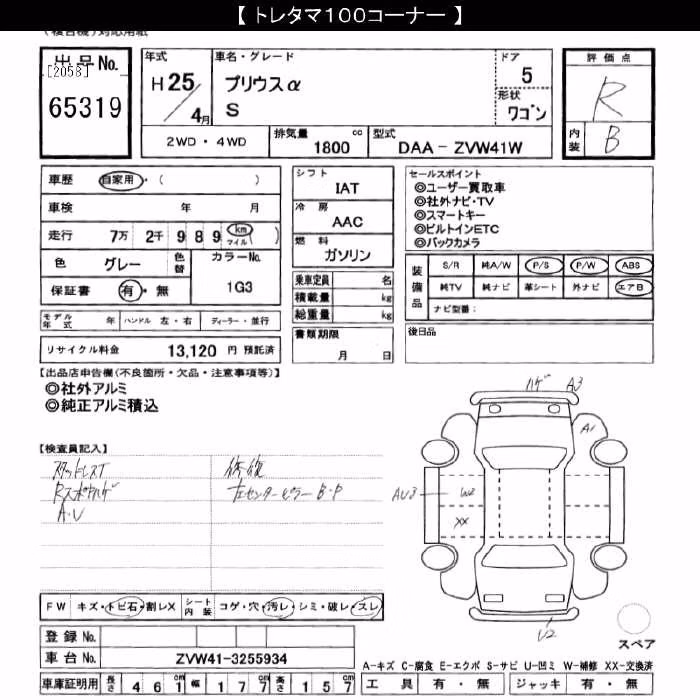 【 トレタマ100コーナー 】
(複合機)対応用紙
出品No.
[2058]
65319
年式
H 25
4月
車名・グレード
プリウスα
S
ドア
5
形状
ワゴン
評価点
R
内装
B
2WD・4WD
排気量
cc
1800
型式
DAA－ZVW41W
車歴
自家用・( )
車検
年 月
走行
7万 2千 9 8 9 km マイル ( )
色
グレー
色替
カラーNo.
1G3
保証書
有・無
モデル年式
年
ハンドル 左・右
ディーラー・並行
リサイクル料金
13,120 円 預託済
シフト
IAT
冷房
AAC
燃料
ガソリン
乗車定員 名
積載量 kg
総重量 kg
書類期限
月 日
セールスポイント
◎ユーザー買取車
◎社外ナビ・TV
◎スマートキー
◎ビルトインETC
◎バックカメラ
装備品
S/R 純A/W P/S P/W ABS
純TV 純ナビ 革シート 外ナビ エアB
ナビ型番：
後日品
【出品店申告欄(不良箇所・欠品・注意事項等)】
◎社外アルミ
◎純正アルミ積込
【検査員記入】
スタッドレスT
Rスポイラハゲ
A・U
修復
左センターピラー B・P
ハゲ A3
A1
AU3
W2
XX
U2
スペア
FW キズ・トビ石・割レX
シート内装 コゲ・穴・汚レ・シミ・破レ・スレ
登録No.
車台No.
ZVW41-3255934
車庫証明用
長さ 4 6 1 cm
幅 1 7 7 cm
高さ 1 5 7 cm
A-キズ C-腐食 E-エクボ S-サビ U-凹ミ W-補修 XX-交換済
工具 有・無
ジャッキ 有・無